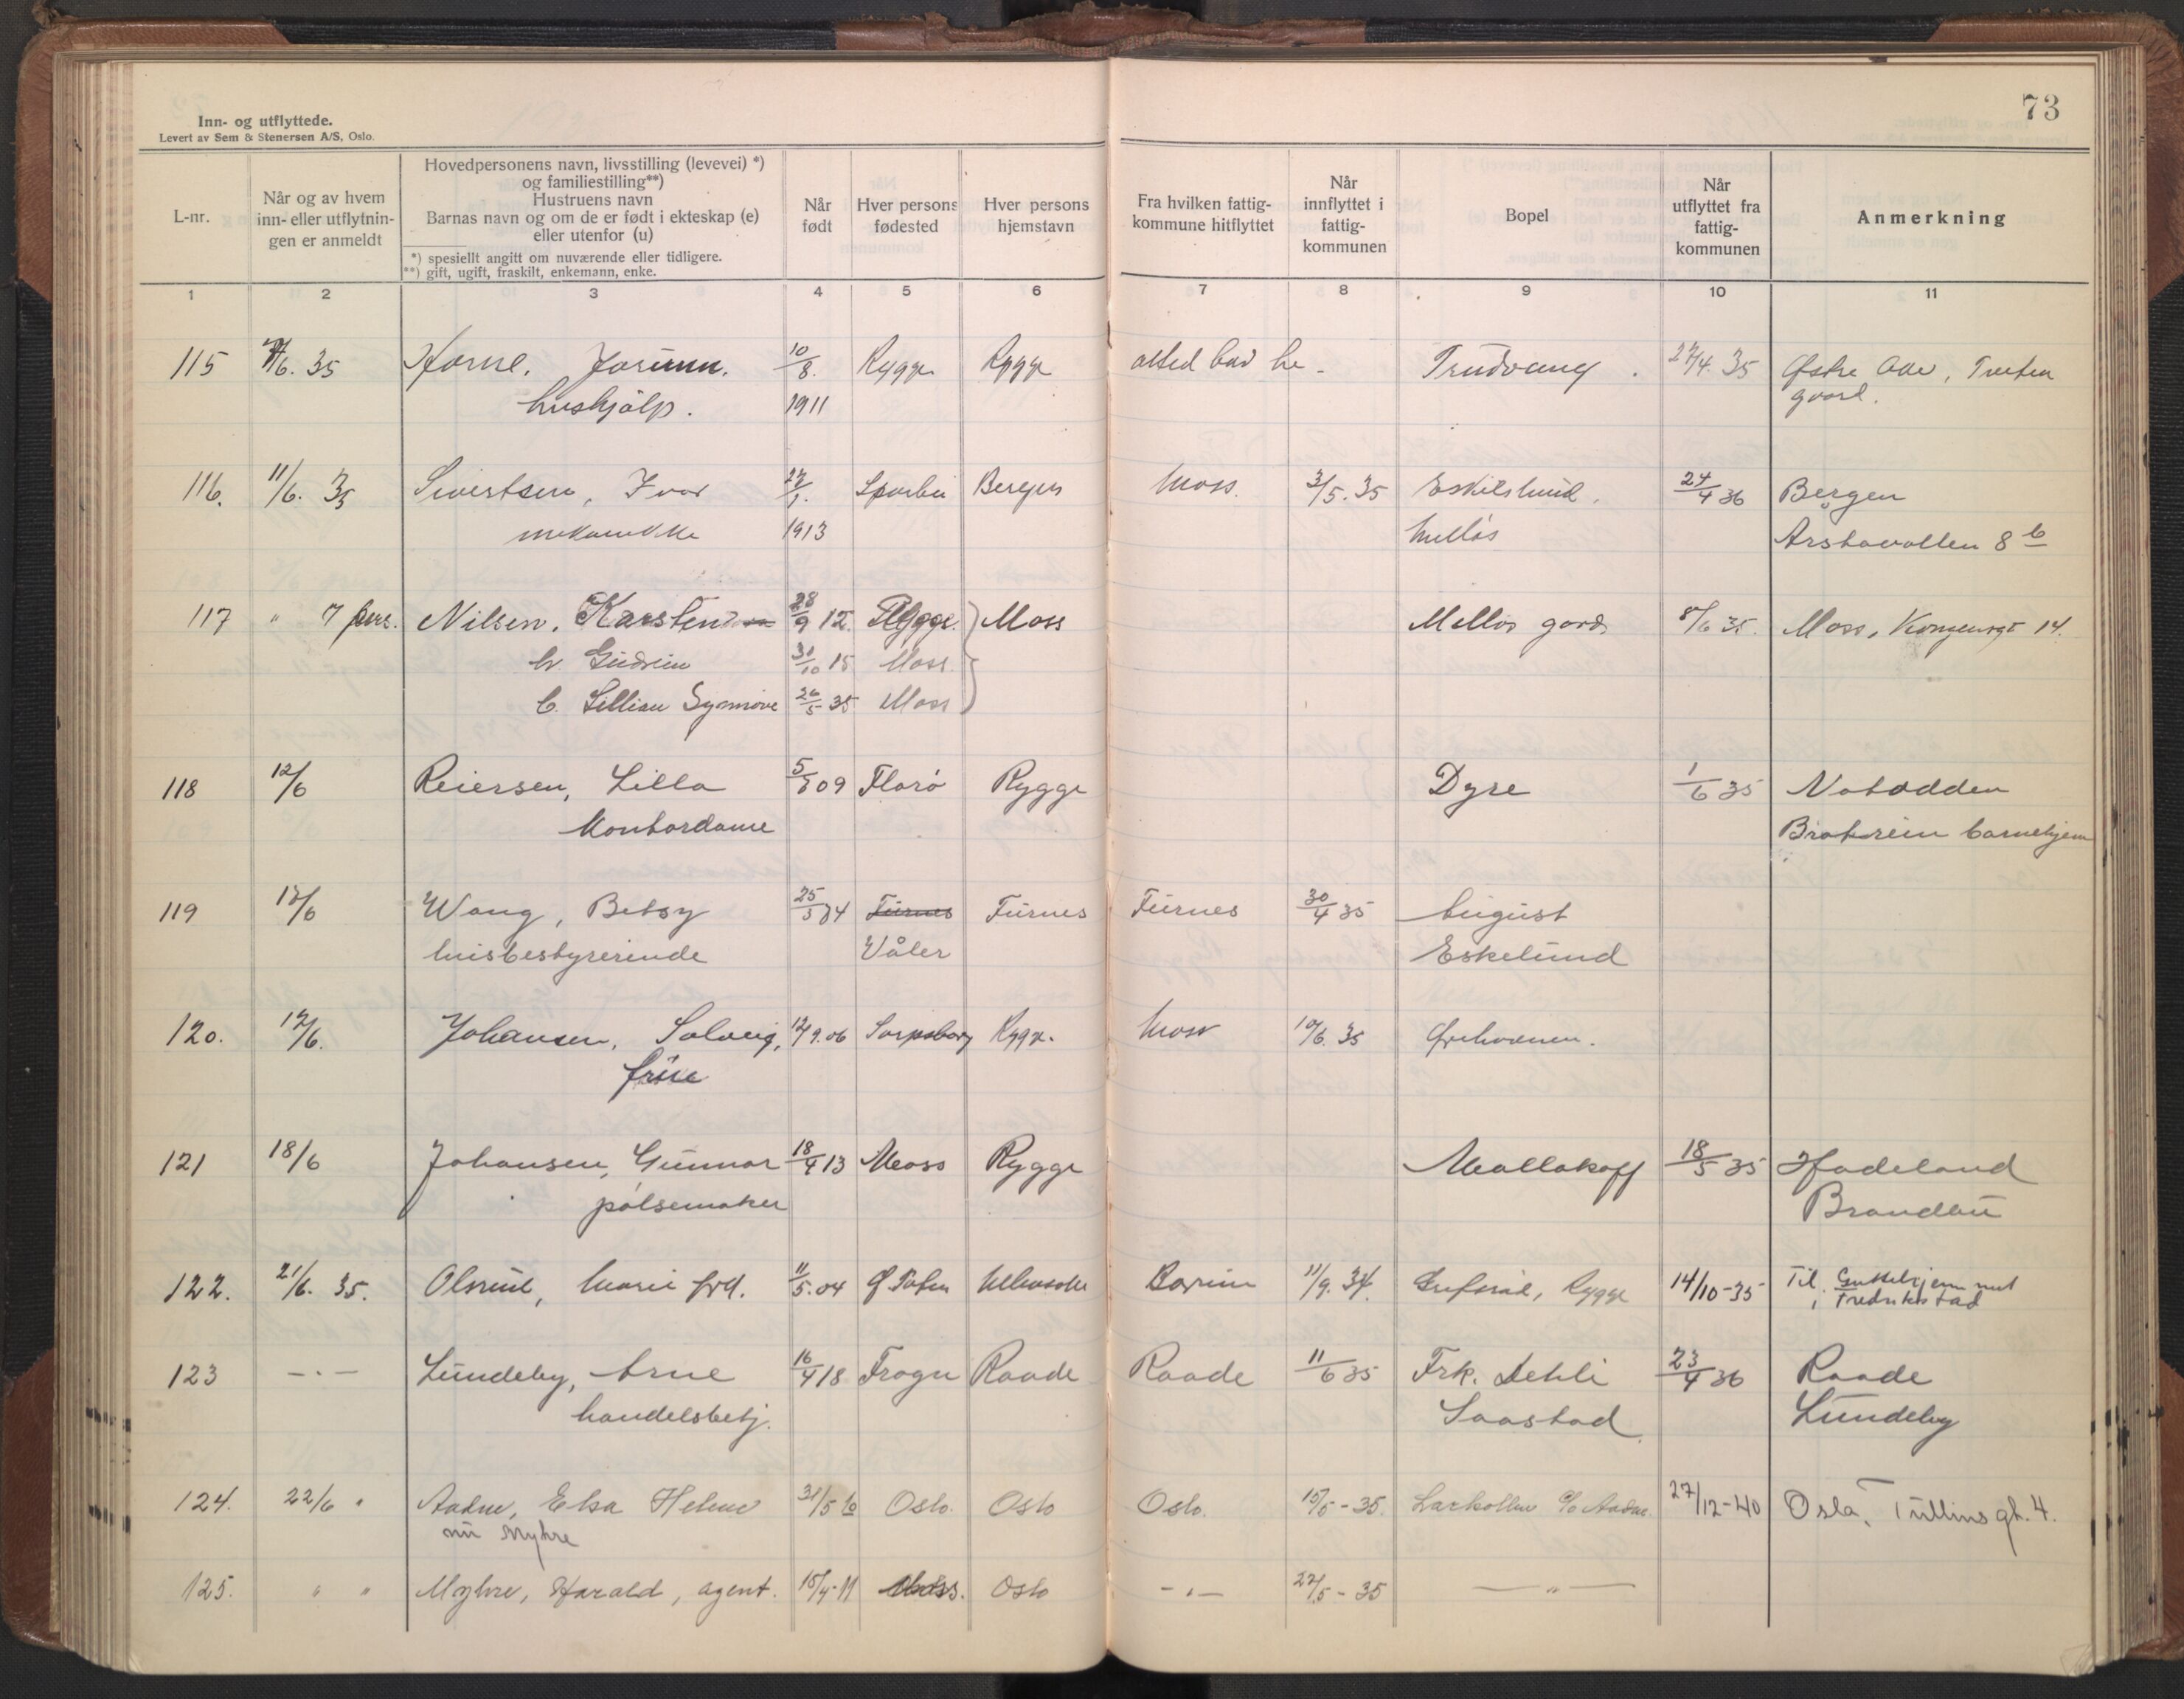 73
Inn- og utflyttede.
Levert av Sem & Stenersen A/S, Oslo.
L-nr.
Når og av hvem
inn- eller utflytnin-
gen er anmeldt
Hovedpersonens navn, livsstilling (levevei) *)
og familiestilling**)
Hustruens navn
Barnas navn og om de er født i ekteskap (e)
eller utenfor (u)
*) spesiellt angitt om nuværende eller tidligere.
**) gift, ugift, fraskilt, enkemann, enke.
Når
født
Hver persons
fødested
Hver persons
hjemstavn
Fra hvilken fattig-
kommune hitflyttet
Når
innflyttet i
fattig-
kommunen
Bopel
Når
utflyttet fra
fattig-
kommunen
Anmerkning
1 2 3 4 5 6 7 8 9 10 11
115 /6. 35 Horne. Jorunn. 10/8. Rygge Rygge Trudvang. 27/4. 35 Østre
hushjälp. 1911 gaard.
116. 11/6. 35 Sivertsen, Ivar 27/1. Bergen Moss. 3/5. 35 Eskilslund. 24/4 36 Bergen
1913 Melløs Årstavollen 8 b
117 " 7 pers. Nilsen, Karsten 28/9 12. Rygge. Moss Melløs gård. 8/6 35. Moss, Kongensgt 14.
h. Gudrun 31/10 15 Moss.
b. Lillian Synnøve 26/5 35 Moss
118 12/6 Reiersen, Lilla 5/6 09 Florø Rygge Dyre 1/6 35 Notodden
Kontordame barnehjem
119 12/6 Wang, Betsy 25/5 84 Furnes Furnes Furnes 30/4 35 August
husbestyrerinde Våler Eskelund
120. 12/6. Johansen, Solveig, 12/9.06 Sarpsborg Rygge. Moss 10/6. 35
frue
121 18/6 Johansen, Gunnar 18/4 13 Moss Rygge Mallakoff 18/5 35 Hadeland
pølsemaker Brandbu
122. 21/6. 35. Olsrud, Marie frk. 11/5.04 Ø. Toten Bærum 11/9. 34. Rygge 14/10-35 Til
i Fredrikstad
123 -"- Lundeby, Arne 16/4 18 Frogn Raade Raade 11/6 35 Frk. Dehli 23/4 36 Raade
handelsbetj. Saastad Lundeby
124. 22/6 " Aadne, Elsa Helene 31/5 Oslo. Oslo Oslo. 15/5-35. Larkollen c/o Aadne. 27/12-40 Oslo, Tullins gt. 4.
nu Myhre
125. " " Myhre, Harald, agent. 15/4-11 Moss. Oslo -"- 27/5-35 -"-